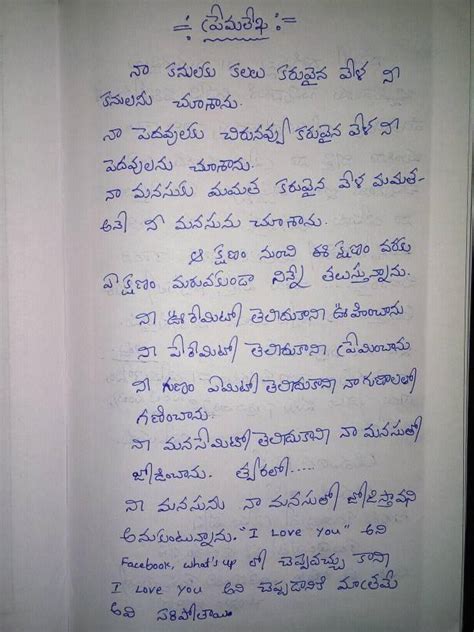 -:= ప్రేమలేఖ :=-
నా కనులకు కలలు కరువైన వేళ నీ
కనులను చూశాను.
నా పెదవులకు చిరునవ్వు కరువైన వేళ నీ
పెదవులను చూశాను.
నా మనసుకు మమత కరువైన వేళ మమత-
అనే నీ మనసును చూశాను.
ఆ క్షణం నుంచి ఈ క్షణం వరకు
ఏ క్షణం మరువకుండా నిన్నే తలుస్తున్నాను.
నీ ఊరేమిటో తెలిదుకాని ఊహించాను
నీ పేరేమిటో తెలిదుకాని ప్రేమించాను
నీ గుణం ఏమిటో తెలిదుకాని నా గుణాలలో
గణించాను.
నీ మనసేమిటో తెలిదుకాని నా మనసుతో
జోడించాను. త్వరలో....
నీ మనసును నా మనసుతో జోడిస్తావని
అనుకుంటున్నాను. "I Love You" అని
Facebook, what's up లో చెప్పవచ్చు కాని
I Love You అని చెప్పడానికే మాత్రమే
అవి సరిపోతాయి